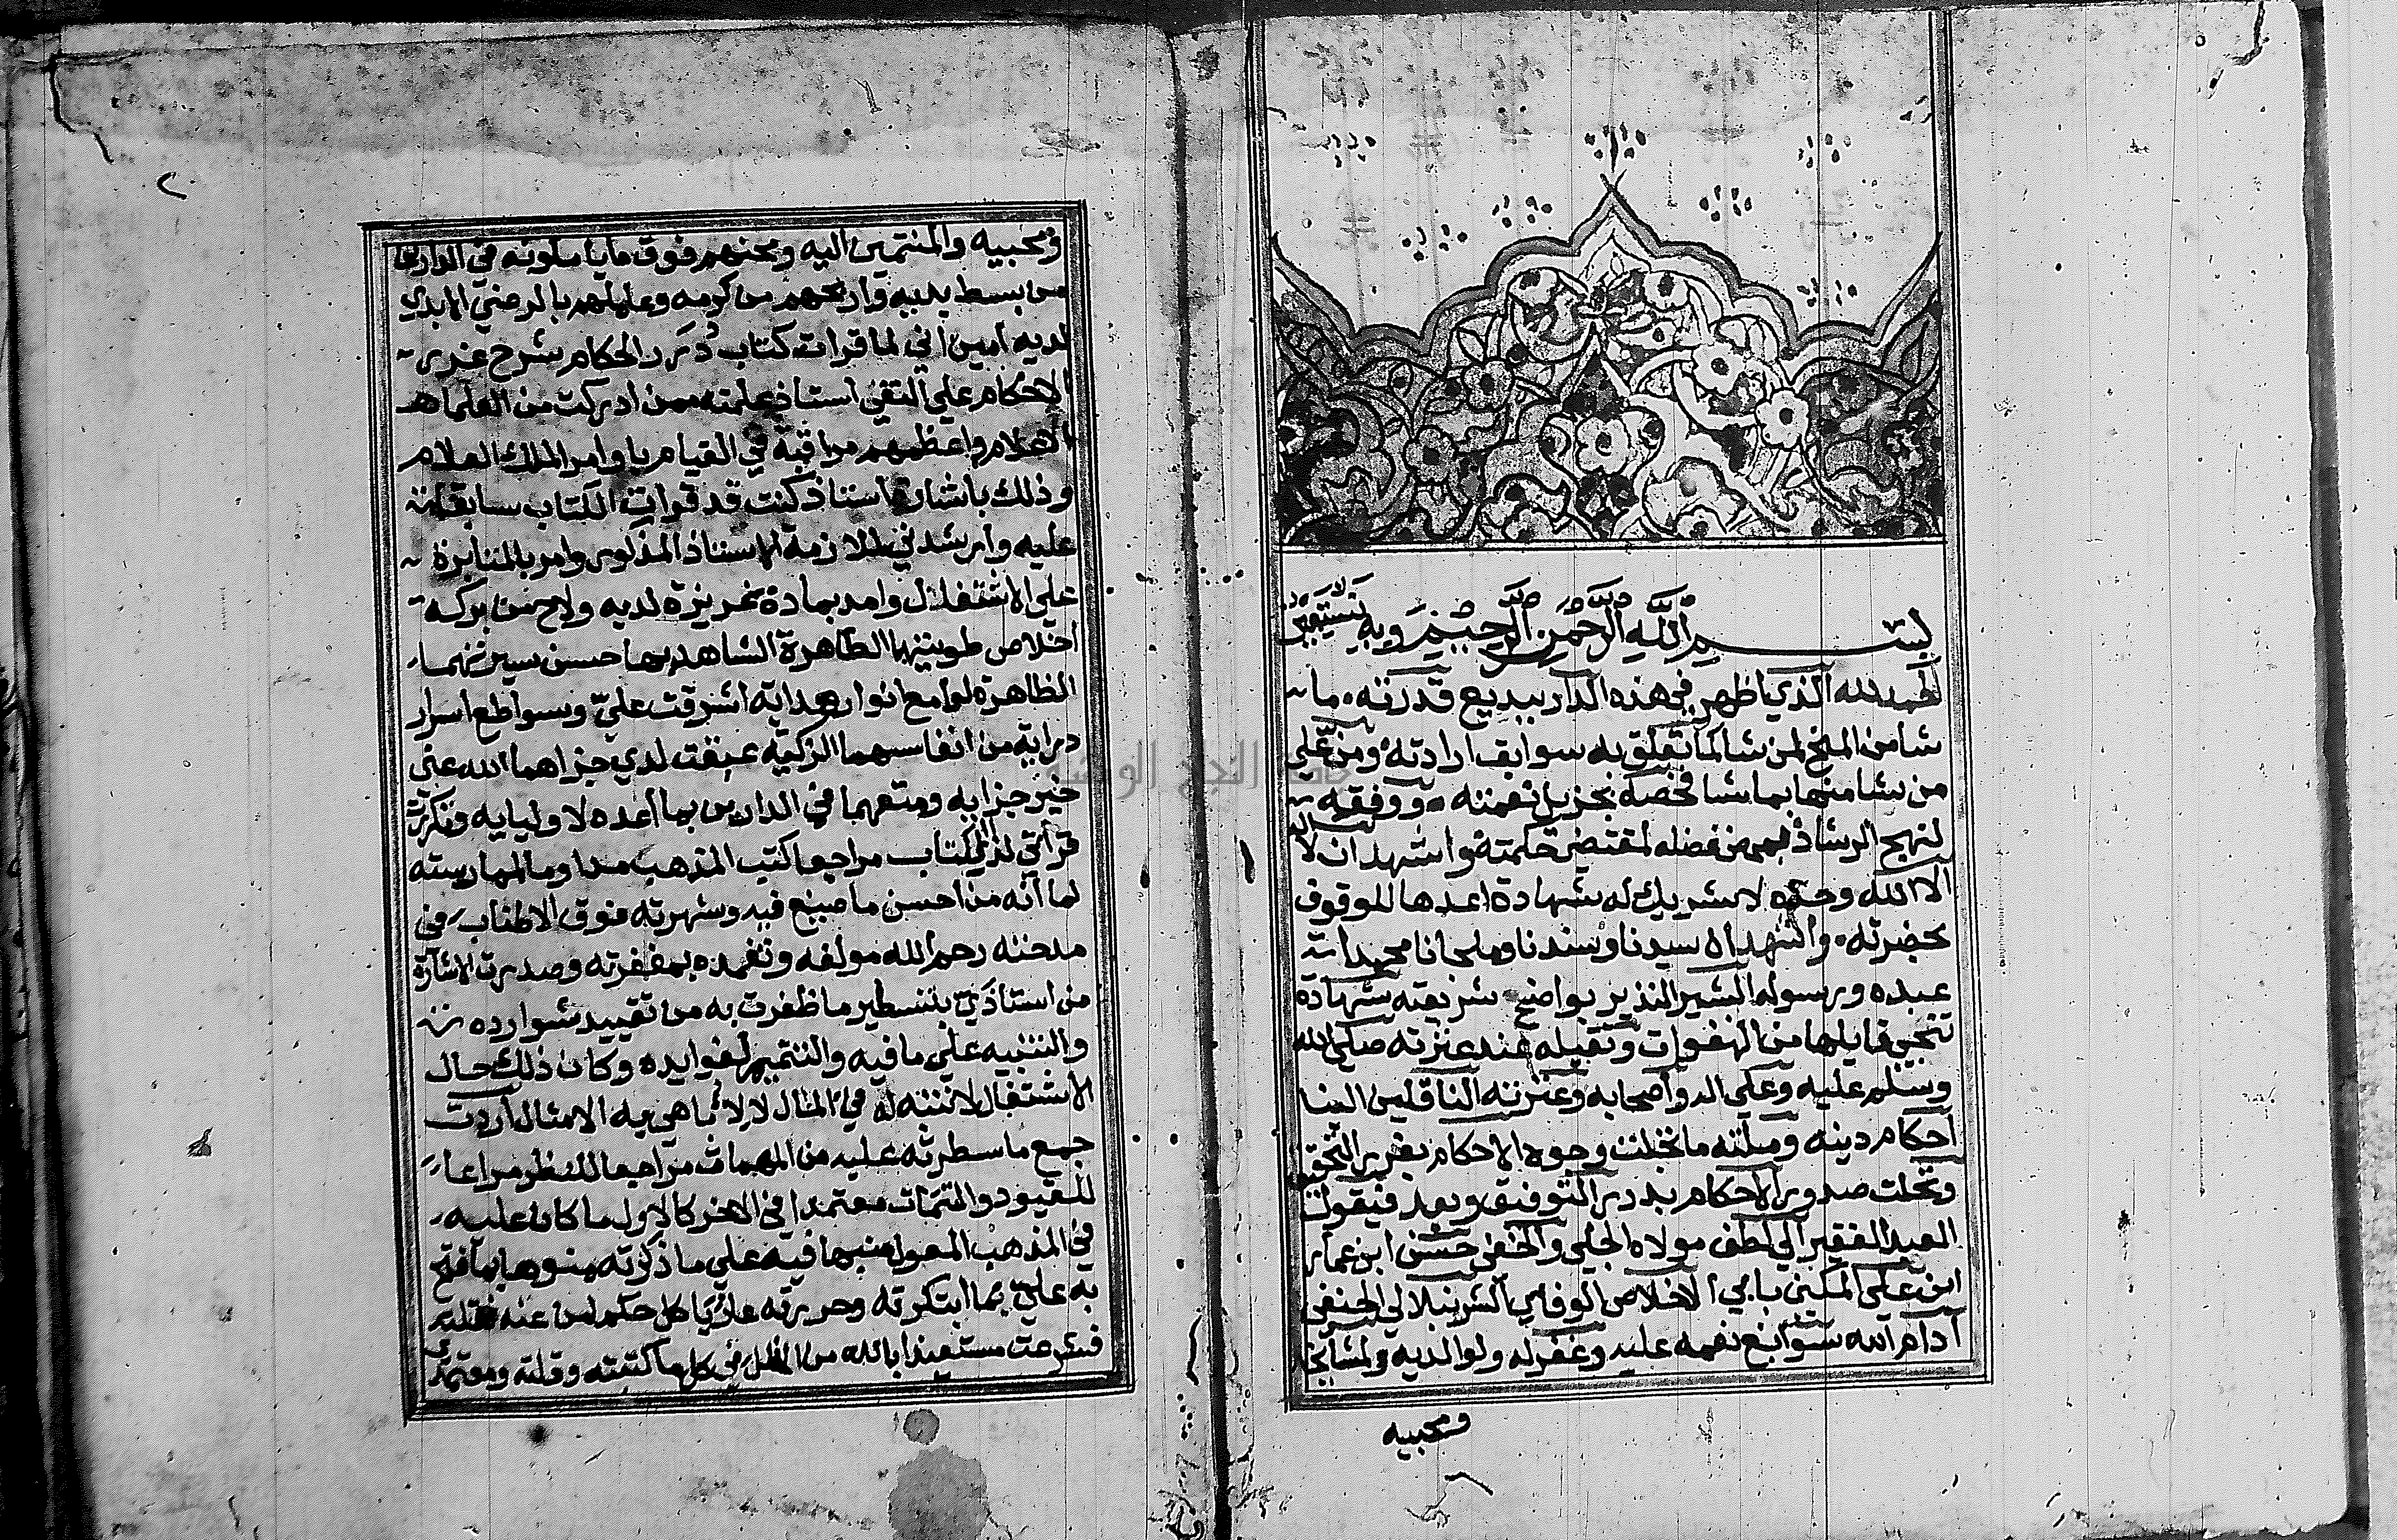 بسم الله الرحمن الرحيم وبه نستعين
الحمد لله الذي اظهر في هذه الدار ببديع قدرته ما
شا من المنح لمن شا لما تعلق به سوابق ارادته ومن علي
من شا منها بما شا فخصه بجزيل نعمته ووفقه
لنهج الرشاد من فضله لمقتضى حكمته واشهد ان لا اله
الا الله وحده لا شريك له شهادة اعدها للوقوف
بحضرته واشهد ان سيدنا وسندنا وملجانا محمدا
عبده ورسوله البشير النذير بواضح شريعته شهادة
تنجي قايلها من الهفوات وتقيله عند عثرته صلي الله
وسلم عليه وعلي اله واصحابه وعترته الناقلين الينا
احكام دينه وملته ما تحلت وجوه الاحكام بغرر التحقيق
وتحلت صدور الاحكام بدرر التوفيق وبعد فيقول
العبد الفقير الي لطف مولاه الجلي والخفي حسن ابن عمار
ابن علي المكني بابي الاخلاص الوفاي الشرنبلالي الحنفي
ادام الله سوابغ نعمه عليه وغفر له ولوالديه ولمشايخه
ومحبيه
٢
ومحبيه والمنتمين اليه ومنحهم فوق ما ياملونه في الدارين
من بسط يديه واربحهم من كرمه وعاملهم بالرضي الابدي
لديه امين اني لما قرات كتاب درر الحكام شرح غرر
الاحكام علي اتقي استاذ علمته ممن ادركت من العلما
الاعلام واعظمهم مراقبة في القيام باوامر الملك العلام
وذلك باشارة استاذ كنت قد قرات الكتاب سابقا
عليه وارشدني لملازمة الاستاذ المذكور وامر بالمثابرة
علي الاشتغال وامد بمادة غزيزة لديه ولاح من بركة
اخلاص طويتهما الطاهرة الشاهد بها حسن سيرتهما
الظاهرة لوامع انوار هداية اشرقت علي وسواطع اسرار
دراية من انفاسهما الزكية عبقت لدي جزاهما الله عني
خير جزايه ومتعهما في الدارين بما اعده لاوليايه وتكررت
قراتي لذلك الكتاب مراجعا كتب المذهب مداوما لممارسته
لما انه من احسن ما صنع فيه وشهرته فوق الاطناب في
مدحته رحم الله مولفه وتغمده بمغفرته وصدرت الاشارة
من استاذي بتسطير ما ظفرت به من تقييد شوارده
والتنبيه علي ما فيه والتتميم لفوايده وكان ذلك حال
الاشتغال لانتبه له في المثال لا لاباهي به الامثال اردت
جمع ما سطرته عليه من المهمات مراجعا للنظر مراعيا
للقيود والتتمات معتمدا في الاخر كالاول ما كان عليه
في المذهب المعول منبها فيه علي ما ذكرته منوها بما فتح
به علي بما ابتكرته وحررته عازيا كل حكم لمن عنه نقلته
فشرعت مستعيذا بالله من الخلل في كل ما كتبته وقلته ومعتمدي